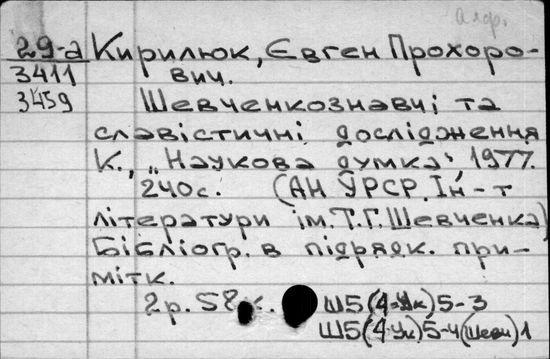 алф.
29-а Кирилюк, Євген Прохоро-
3411 вич.
3459 Шевченкознавчі та
славістичні дослідження
К., „Наукова думка", 1977.
240с. (АН УРСР. Ін-т
літератури ім. Т.Г. Шевченка)
Бібліогр. в підрядк. при-
мітк.
2р. 58 к. Ш5(4=Ук)5-3
Ш5(4=Ук)5-4(Шевч)1